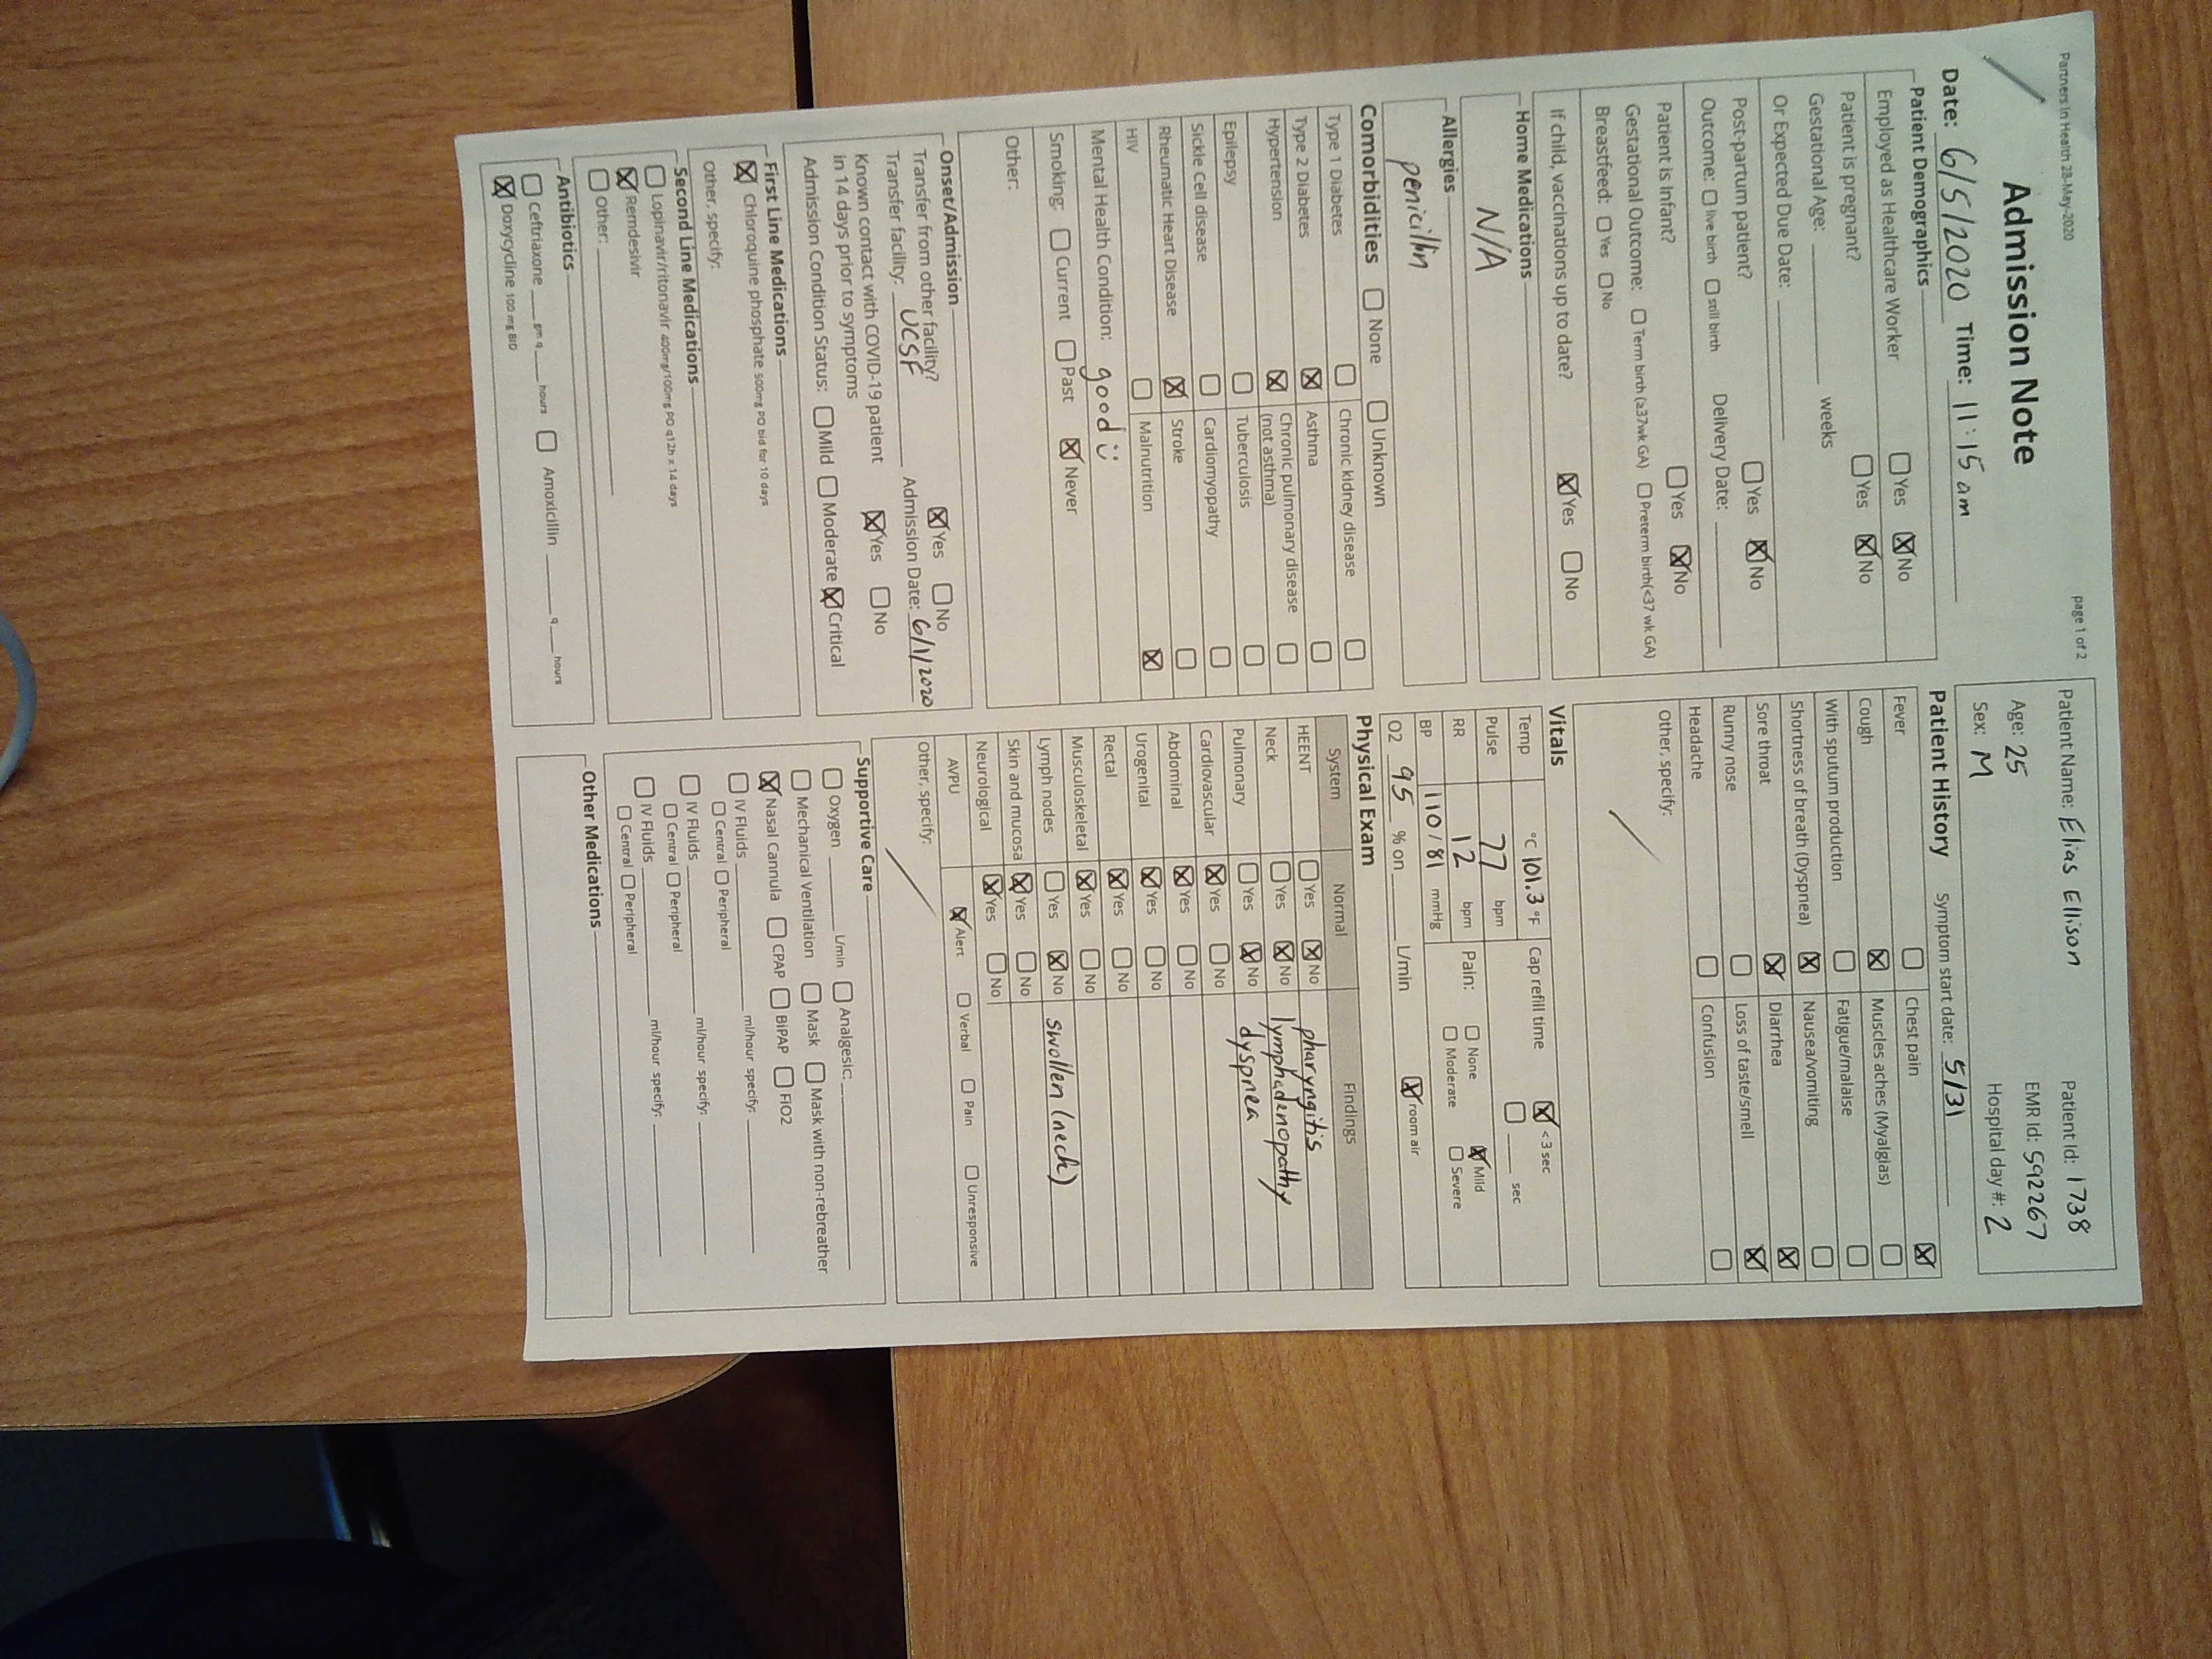 Partners In Health 28-May-2020 page 1 of 2
Admission Note
Date: 6/5/2020 Time: 11:15 am
Patient Demographics
Employed as Healthcare Worker ☐ Yes ☒ No
Patient is pregnant? ☐ Yes ☒ No
Gestational Age: ______ weeks
Or Expected Due Date: ______
Post-partum patient? ☐ Yes ☒ No
Outcome: ☐ live birth ☐ still birth Delivery Date: ______
Patient is Infant? ☐ Yes ☒ No
Gestational Outcome: ☐ Term birth (≥37wk GA) ☐ Preterm birth(<37 wk GA)
Breastfeed: ☐ Yes ☐ No
If child, vaccinations up to date? ☒ Yes ☐ No
Home Medications
N/A
Allergies
penicillin
Comorbidities ☐ None ☐ Unknown
Type 1 Diabetes ☐ Chronic kidney disease ☐
Type 2 Diabetes ☒ Asthma ☐
Hypertension ☒ Chronic pulmonary disease (not asthma) ☐
Epilepsy ☐ Tuberculosis ☐
Sickle Cell disease ☐ Cardiomyopathy ☐
Rheumatic Heart Disease ☒ Stroke ☐
HIV ☐ Malnutrition ☒
Mental Health Condition: good
Smoking: ☐ Current ☐ Past ☒ Never
Other:
Onset/Admission
Transfer from other facility? ☒ Yes ☐ No
Transfer facility: UCSF Admission Date: 6/1/2020
Known contact with COVID-19 patient
in 14 days prior to symptoms ☒ Yes ☐ No
Admission Condition Status: ☐ Mild ☐ Moderate ☒ Critical
First Line Medications
☒ Chloroquine phosphate 500mg PO bid for 10 days
Other, specify:
Second Line Medications
☐ Lopinavir/ritonavir 400mg/100mg PO q12h x 14 days
☒ Remdesivir
☐ Other: ______
Antibiotics
☐ Ceftriaxone ____ gm q ____ hours ☐ Amoxicillin ____ q ____ hours
☒ Doxycycline 100 mg BID
Patient Name: Elias Ellison Patient Id: 1738
Age: 25 EMR Id: 592267
Sex: M Hospital day #: 2
Patient History Symptom start date: 5/31
Fever ☐ Chest pain ☒
Cough ☒ Muscles aches (Myalgias) ☐
With sputum production ☐ Fatigue/malaise ☐
Shortness of breath (Dyspnea) ☒ Nausea/vomiting ☐
Sore throat ☒ Diarrhea ☒
Runny nose ☐ Loss of taste/smell ☒
Headache ☐ Confusion ☐
Other, specify:
Vitals
Temp °C 101.3 °F Cap refill time ☒ <3 sec
☐ ____ sec
Pulse 77 bpm
RR 12 bpm Pain: ☐ None ☒ Mild
☐ Moderate ☐ Severe
BP 110/81 mmHg
O2 95 % on ____ L/min ☒ room air
Physical Exam
System Normal Findings
HEENT ☐ Yes ☒ No pharyngitis
Neck ☐ Yes ☒ No lymphadenopathy
Pulmonary ☐ Yes ☒ No dyspnea
Cardiovascular ☒ Yes ☐ No
Abdominal ☒ Yes ☐ No
Urogenital ☒ Yes ☐ No
Rectal ☒ Yes ☐ No
Musculoskeletal ☒ Yes ☐ No
Lymph nodes ☐ Yes ☒ No swollen (neck)
Skin and mucosa ☒ Yes ☐ No
Neurological ☒ Yes ☐ No
AVPU ☒ Alert ☐ Verbal ☐ Pain ☐ Unresponsive
Other, specify:
Supportive Care
☐ Oxygen ____ L/min ☐ Analgesic: ____
☐ Mechanical Ventilation ☐ Mask ☐ Mask with non-rebreather
☒ Nasal Cannula ☐ CPAP ☐ BiPAP ☐ FiO2
☐ IV Fluids ____ ml/hour specify: ____
☐ Central ☐ Peripheral
☐ IV Fluids ____ ml/hour specify: ____
☐ Central ☐ Peripheral
☐ IV Fluids ____ ml/hour specify: ____
☐ Central ☐ Peripheral
Other Medications